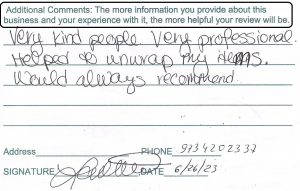 Additional Comments: The more information you provide about this
business and your experience with it, the more helpful your review will be.
Very kind people. Very professional.
Helped to unwrap my items.
Would always recommend.
Address PHONE 9734202337
SIGNATURE DATE 6/26/23